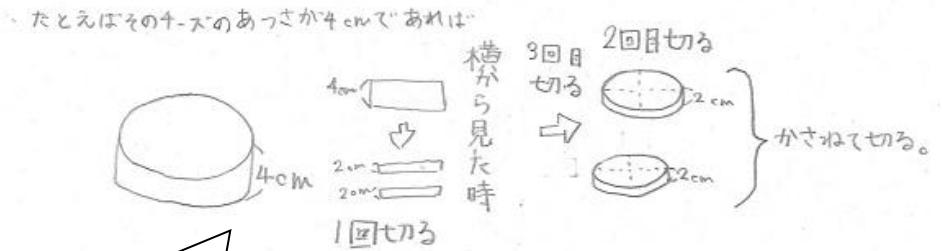 たとえばそのチーズのあつさが4cmであれば
4cm
4cm
2cm
2cm
1回切る
横から見た時
3回目
切る
2回目切る
2cm
2cm
かさねて切る。